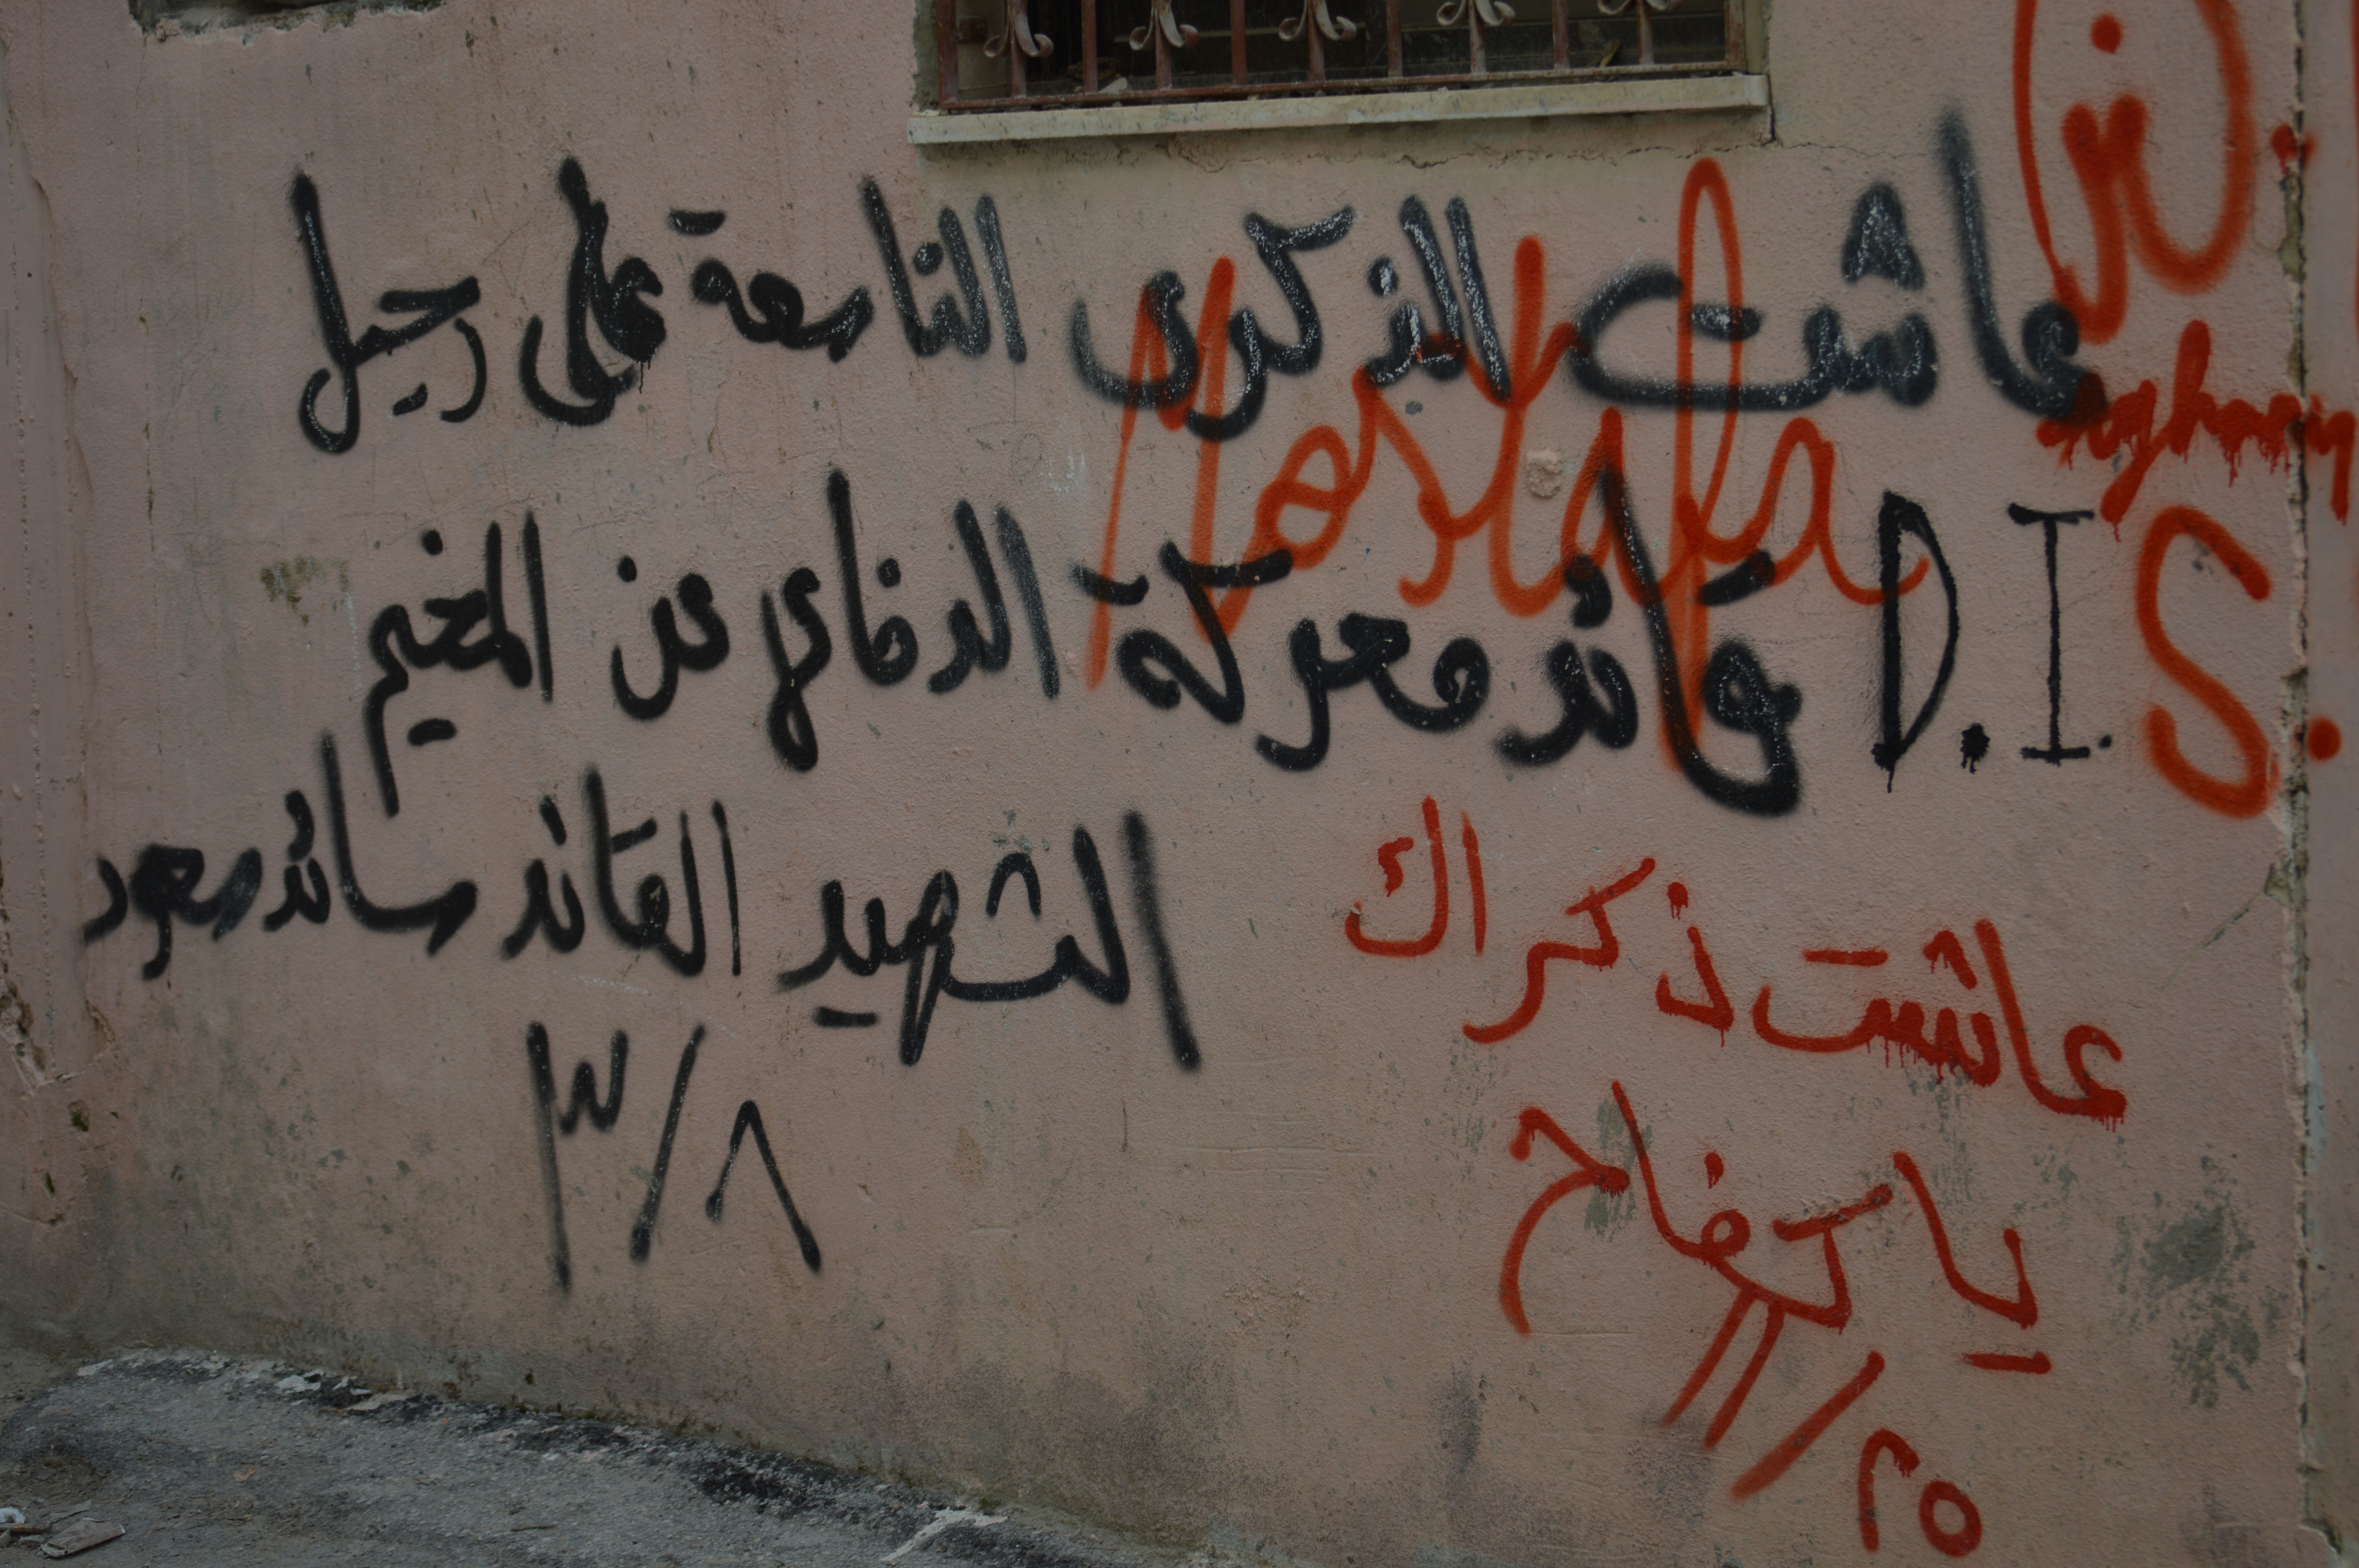 عاشت الذكرى التاسعة على رحيل
قائد معركة الدفاع عن المخيم
الشهيد القائد سائد سعود
٨/٣
Mostafa
D.I.S.
عاشت ذكراك
يا كفاح
٢٥/١١